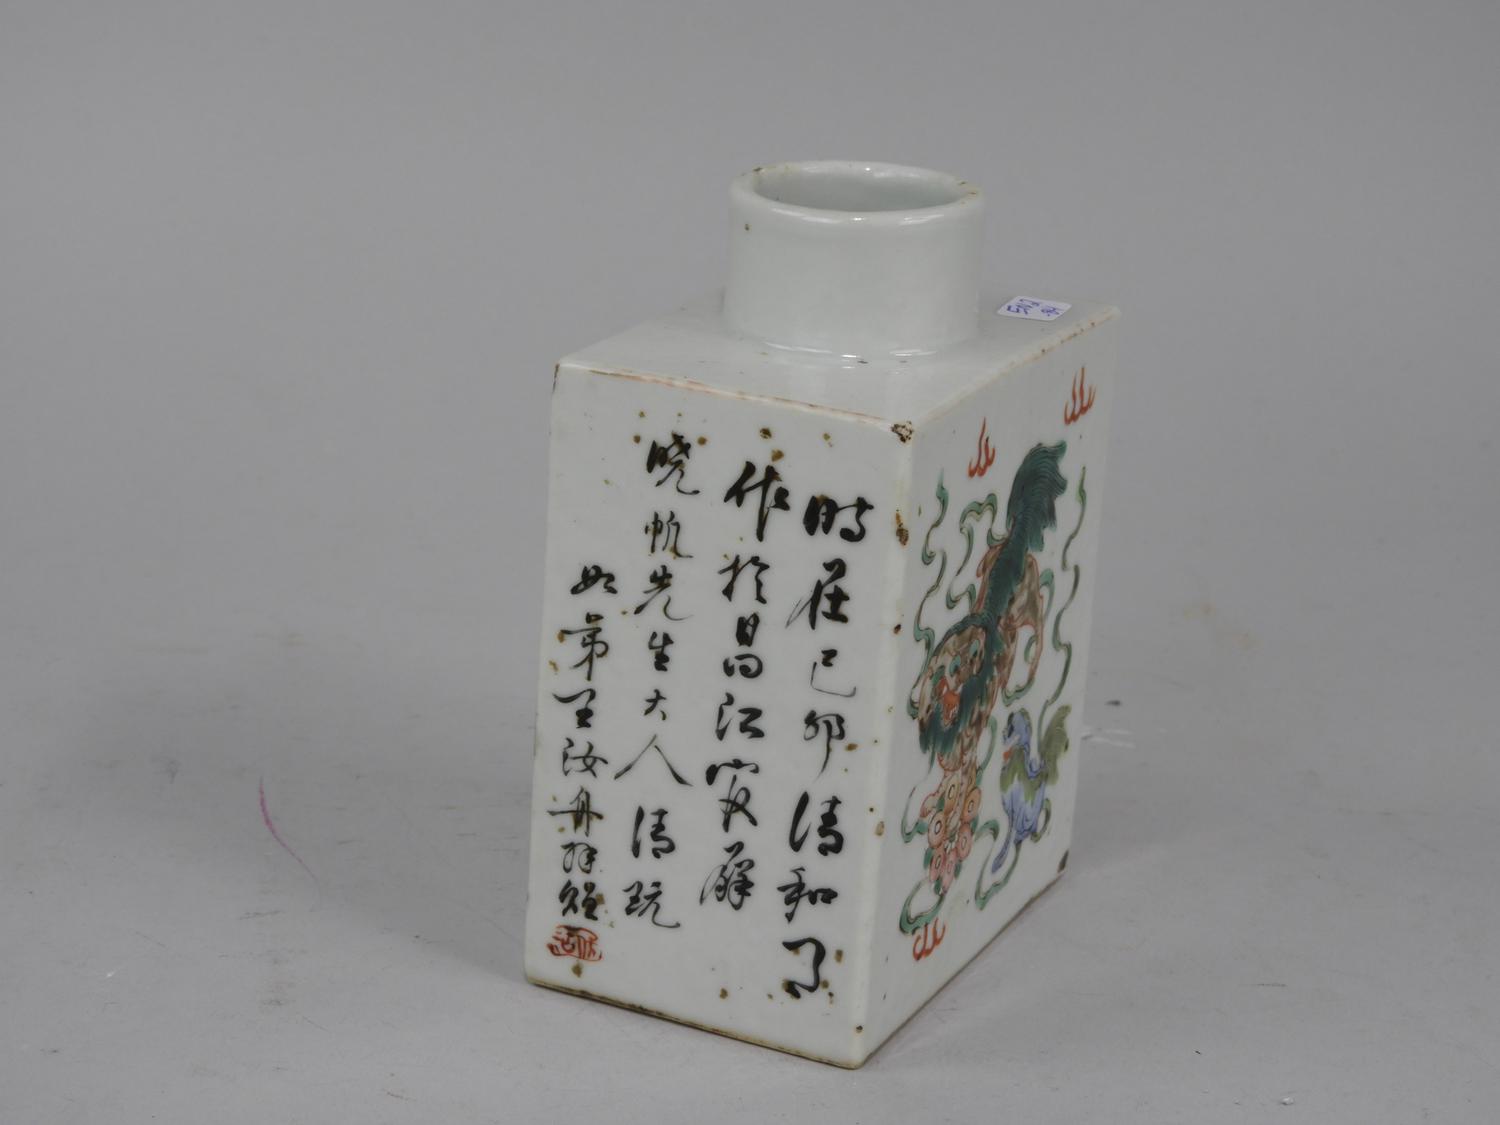 時在己卯清和月
作於昌江寓廨
曉帆先生大人清玩
如弟王汝舟拜贈